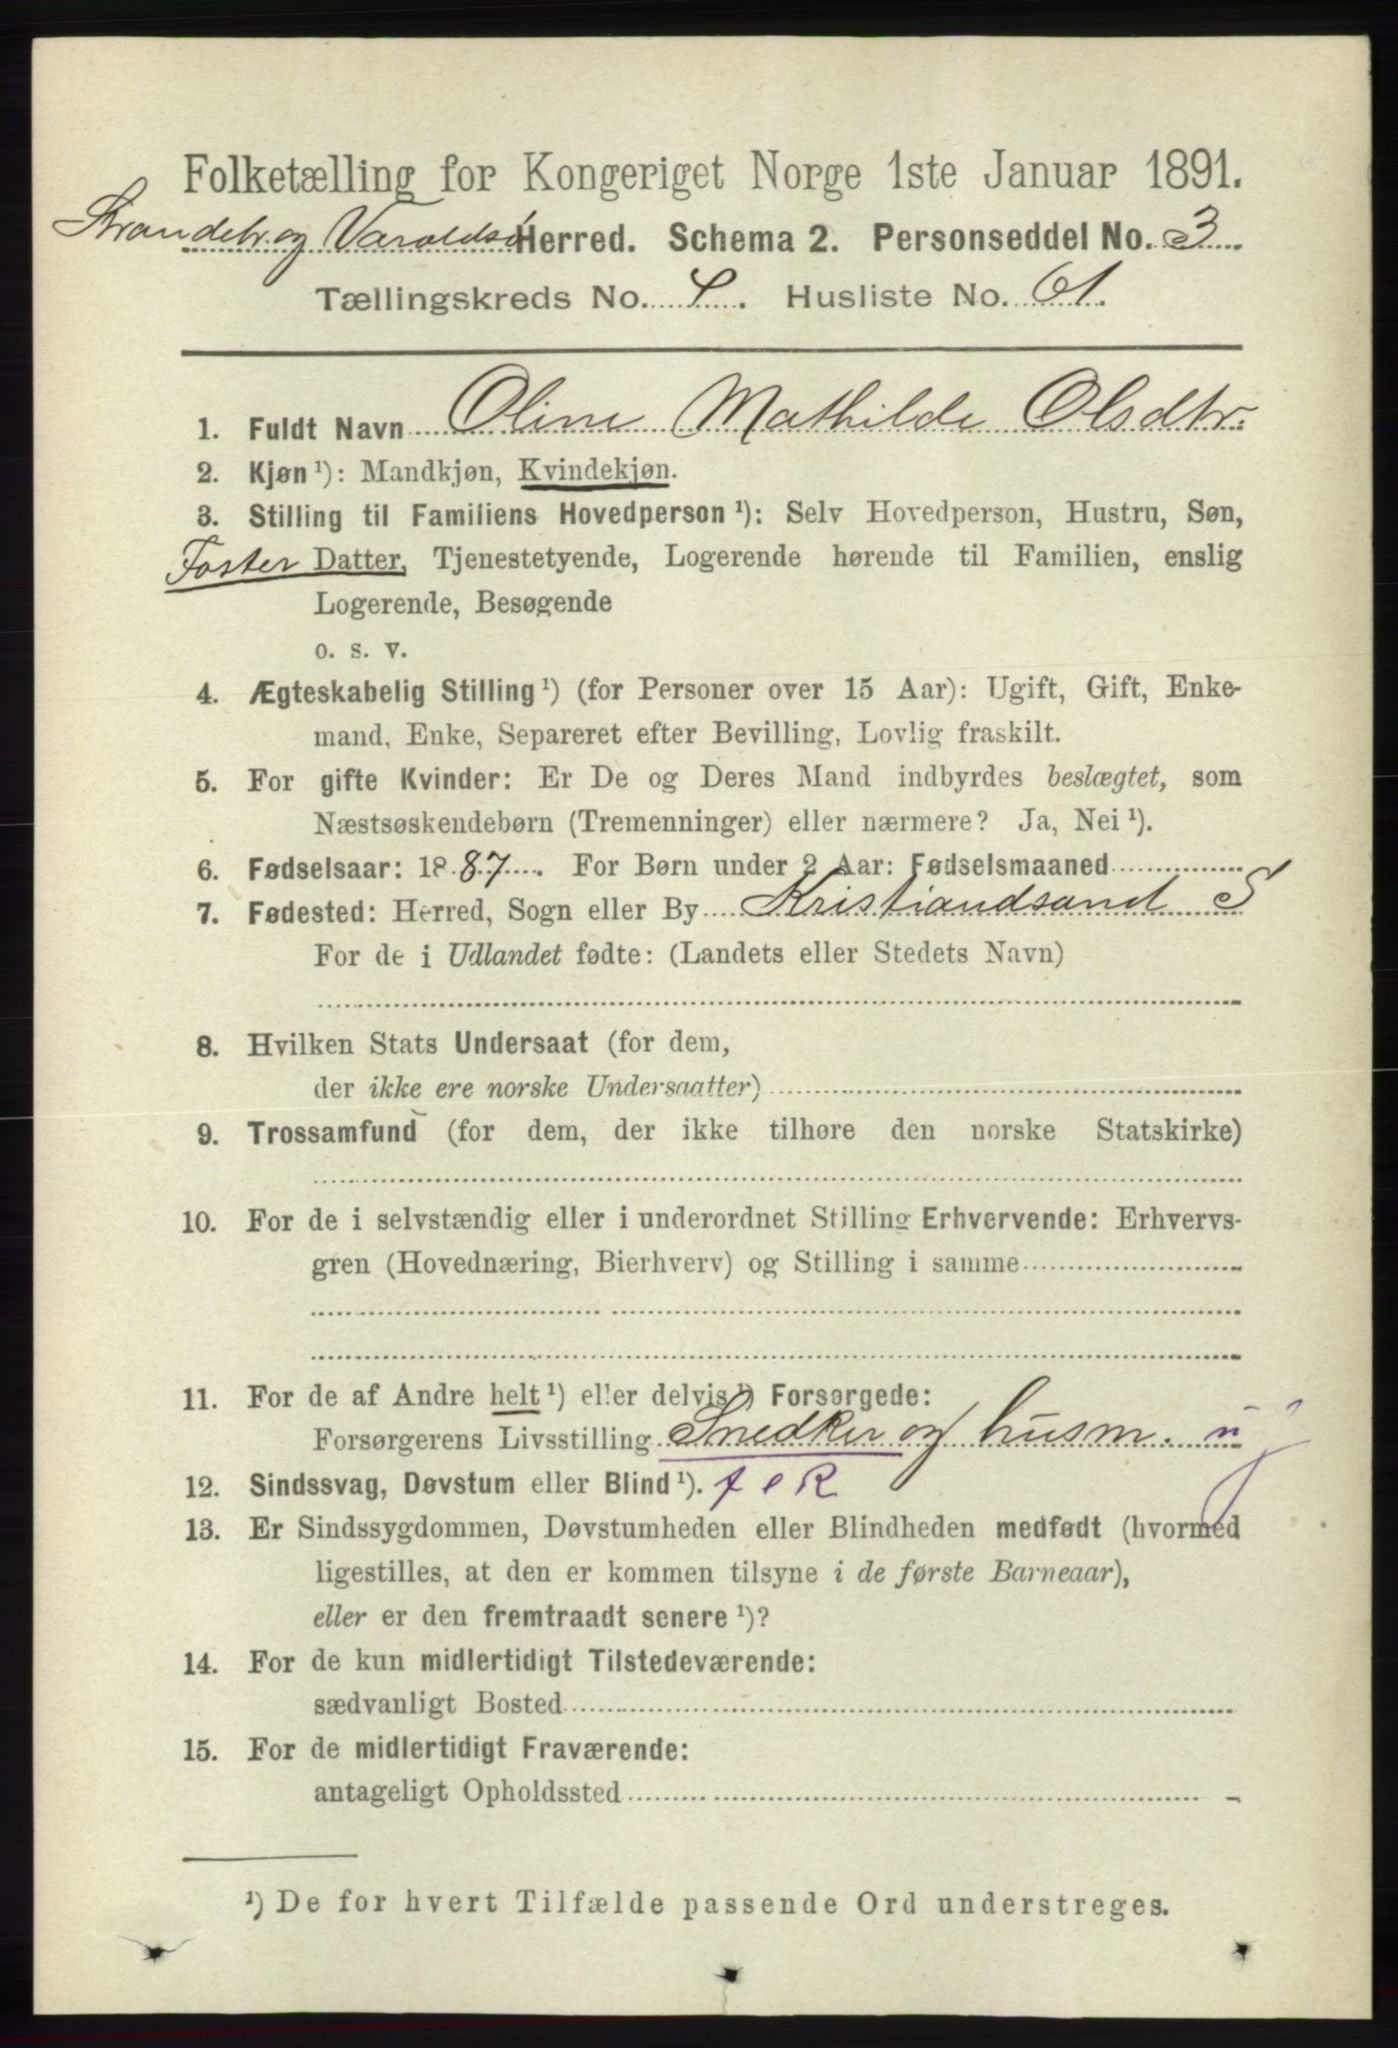 Folketælling for Kongeriget Norge 1ste Januar 1891.
Strandebr. og Varaldsø Herred. Schema 2. Personseddel No. 3
Tællingskreds No. 4. Husliste No. 61.
1. Fuldt Navn Oline Mathilde Olsdtr.
2. Kjøn ¹): Mandkjøn, Kvindekjøn.
3. Stilling til Familiens Hovedperson ¹): Selv Hovedperson, Hustru, Søn,
Foster Datter, Tjenestetyende, Logerende hørende til Familien, enslig
Logerende, Besøgende
o. s. v.
4. Ægteskabelig Stilling ¹) (for Personer over 15 Aar): Ugift, Gift, Enke-
mand, Enke, Separeret efter Bevilling, Lovlig fraskilt.
5. For gifte Kvinder: Er De og Deres Mand indbyrdes beslægtet, som
Næstsøskendebørn (Tremenninger) eller nærmere? Ja, Nei ¹).
6. Fødselsaar: 1887. For Børn under 2 Aar: Fødselsmaaned
7. Fødested: Herred, Sogn eller By Kristiandsand S
For de i Udlandet fødte: (Landets eller Stedets Navn)
8. Hvilken Stats Undersaat (for dem,
der ikke ere norske Undersaatter)
9. Trossamfund (for dem, der ikke tilhøre den norske Statskirke)
10. For de i selvstændig eller i underordnet Stilling Erhvervende: Erhvervs-
gren (Hovednæring, Bierhverv) og Stilling i samme
11. For de af Andre helt ¹) eller delvis ¹) Forsørgede:
Forsørgerens Livsstilling Snedker og husm. u j
12. Sindssvag, Døvstum eller Blind ¹).
13. Er Sindssygdommen, Døvstumheden eller Blindheden medfødt (hvormed
ligestilles, at den er kommen tilsyne i de første Barneaar),
eller er den fremtraadt senere ¹)?
14. For de kun midlertidigt Tilstedeværende:
sædvanligt Bosted
15. For de midlertidigt Fraværende:
antageligt Opholdssted
¹) De for hvert Tilfælde passende Ord understreges.